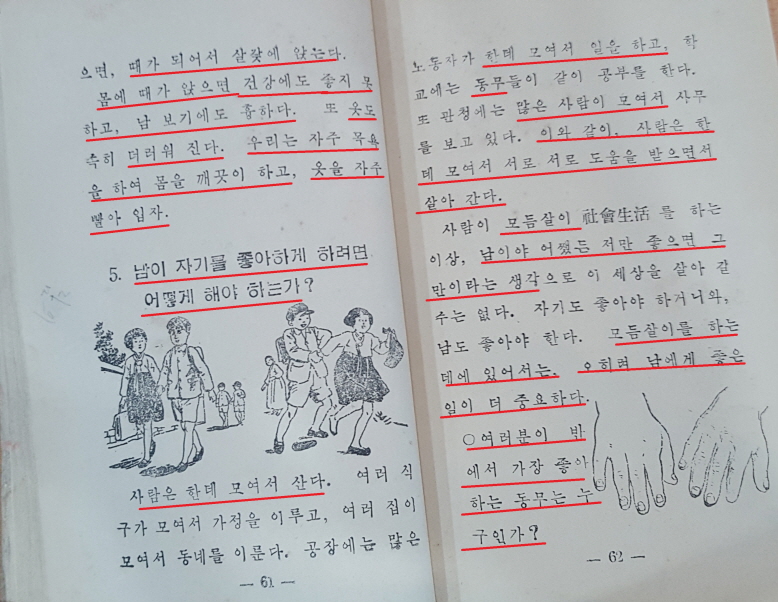 으면, 때가 되어서 살갗에 앉는다.
몸에 때가 앉으면 건강에도 좋지 못
하고, 남 보기에도 흉하다. 또 옷도
속히 더러워 진다. 우리는 자주 목욕
을 하여 몸을 깨끗이 하고, 옷을 자주
빨아 입자.
5. 남이 자기를 좋아하게 하려면
어떻게 해야 하는가?
사람은 한데 모여서 산다. 여러 식
구가 모여서 가정을 이루고, 여러 집이
모여서 동네를 이룬다. 공장에는 많은
— 61 —
노동자가 한데 모여서 일을 하고, 학
교에는 동무들이 같이 공부를 한다.
또 관청에는 많은 사람이 모여서 사무
를 보고 있다. 이와 같이, 사람은 한
데 모여서 서로 서로 도움을 받으면서
살아 간다.
사람이 모듬살이 社會生活 를 하는
이상, 남이야 어쨌든 저만 좋으면 그
만이라는 생각으로 이 세상을 살아 갈
수는 없다. 자기도 좋아야 하거니와,
남도 좋아야 한다. 모듬살이를 하는
데에 있어서는, 오히려 남에게 좋은
일이 더 중요하다.
○여러분이 반
에서 가장 좋아
하는 동무는 누
구인가?
— 62 —